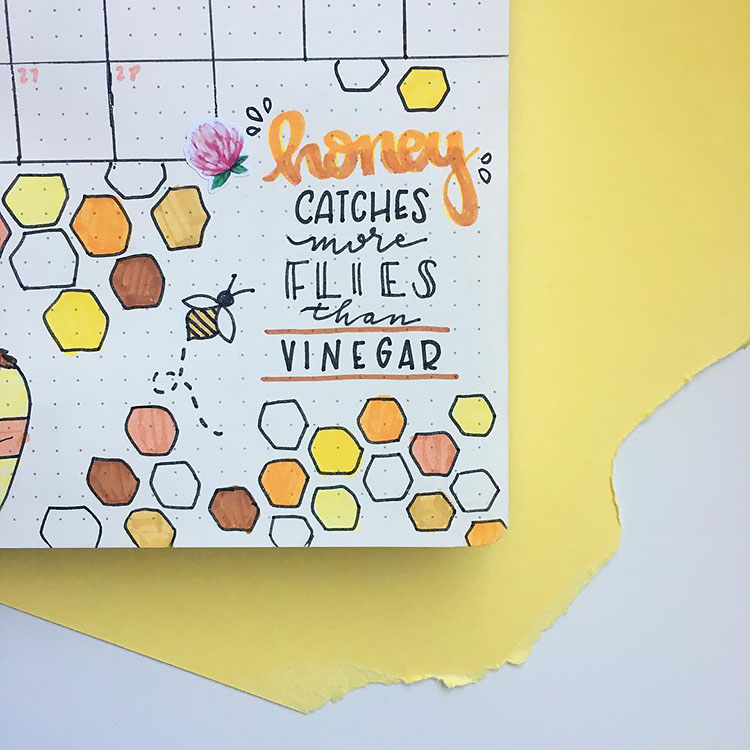 27 28
honey
CATCHES
more
FLIES
than
VINEGAR